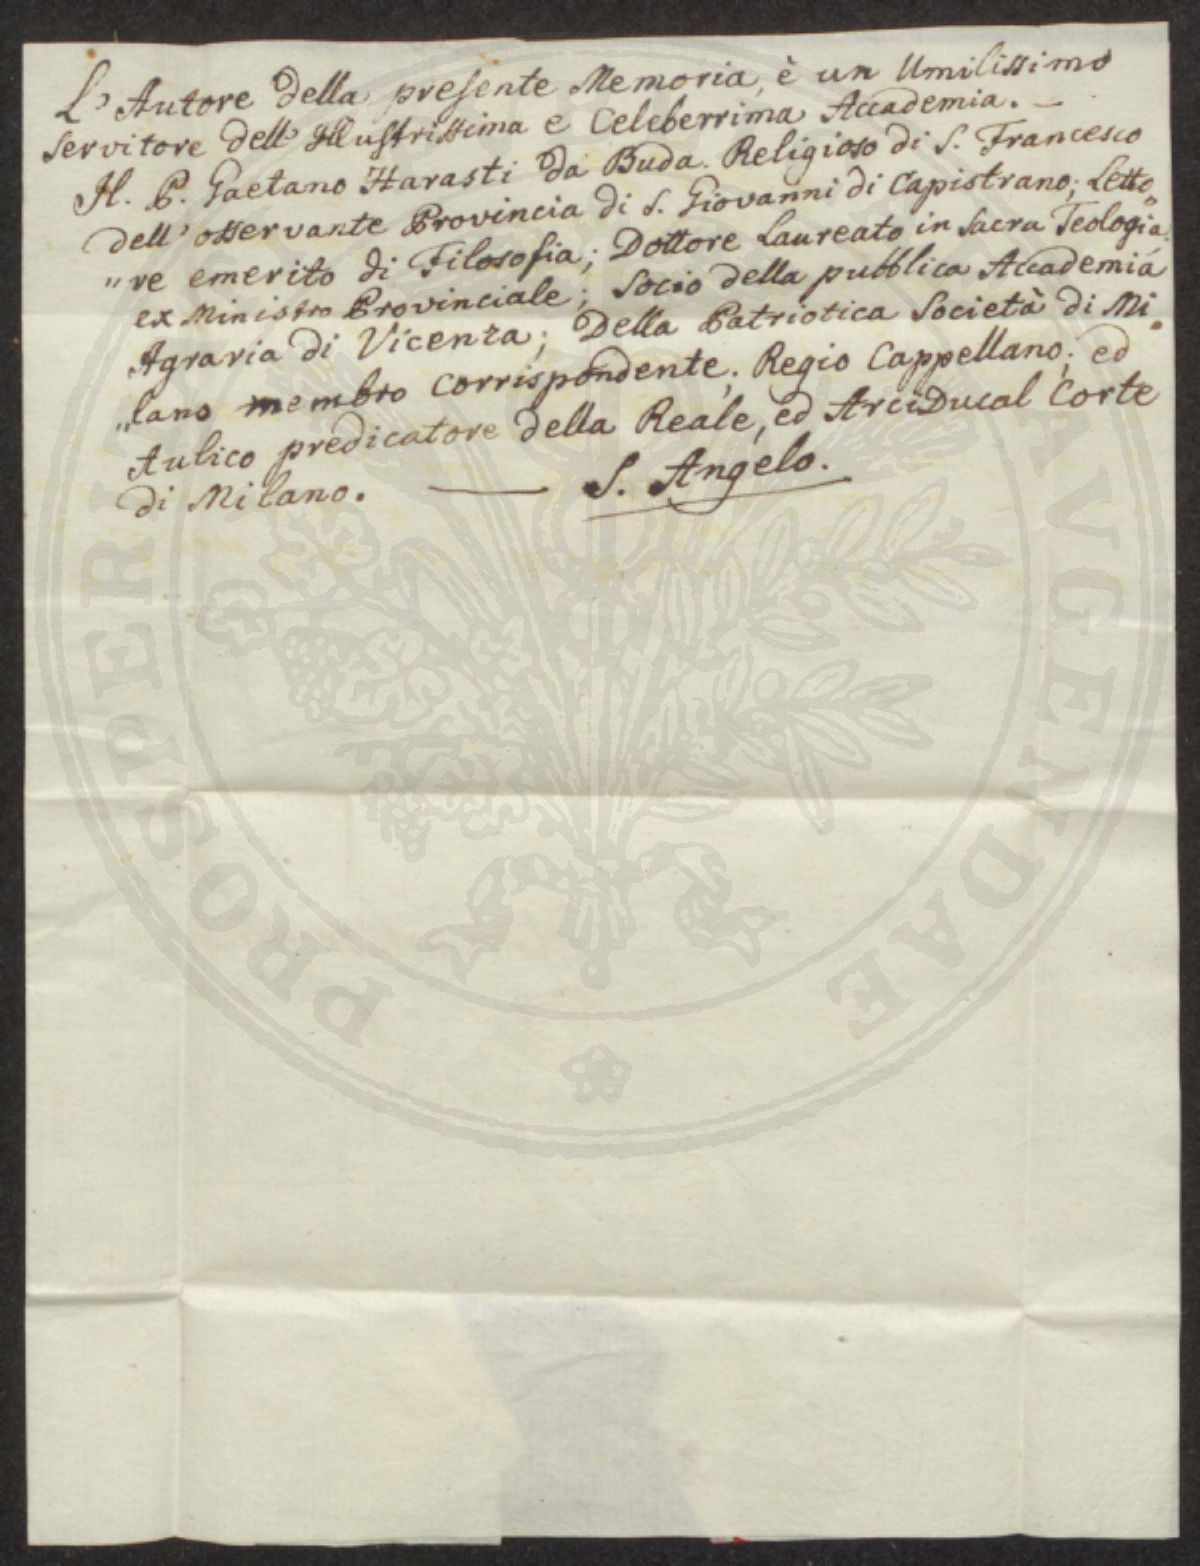 L'Autore della presente Memoria, è un Umilissimo
servitore dell' Illustrissima e Celeberrima Accademia. —
Il. P. Gaetano Harasti da Buda. Religioso di S. Francesco
dell' osservante Provincia di S. Giovanni di Capistrano; Letto„
„re emerito di Filosofia; Dottore Laureato in Sacra Teologia;
ex Ministro Provinciale; Socio della pubblica Accademia
Agraria di Vicenza; Della Patriotica Società di Mi„
„lano membro corrispondente; Regio Cappellano; ed
Aulico predicatore della Reale, ed ArciDucal Corte
di Milano. — S. Angelo.
PROSPERITATI AVGENDAE